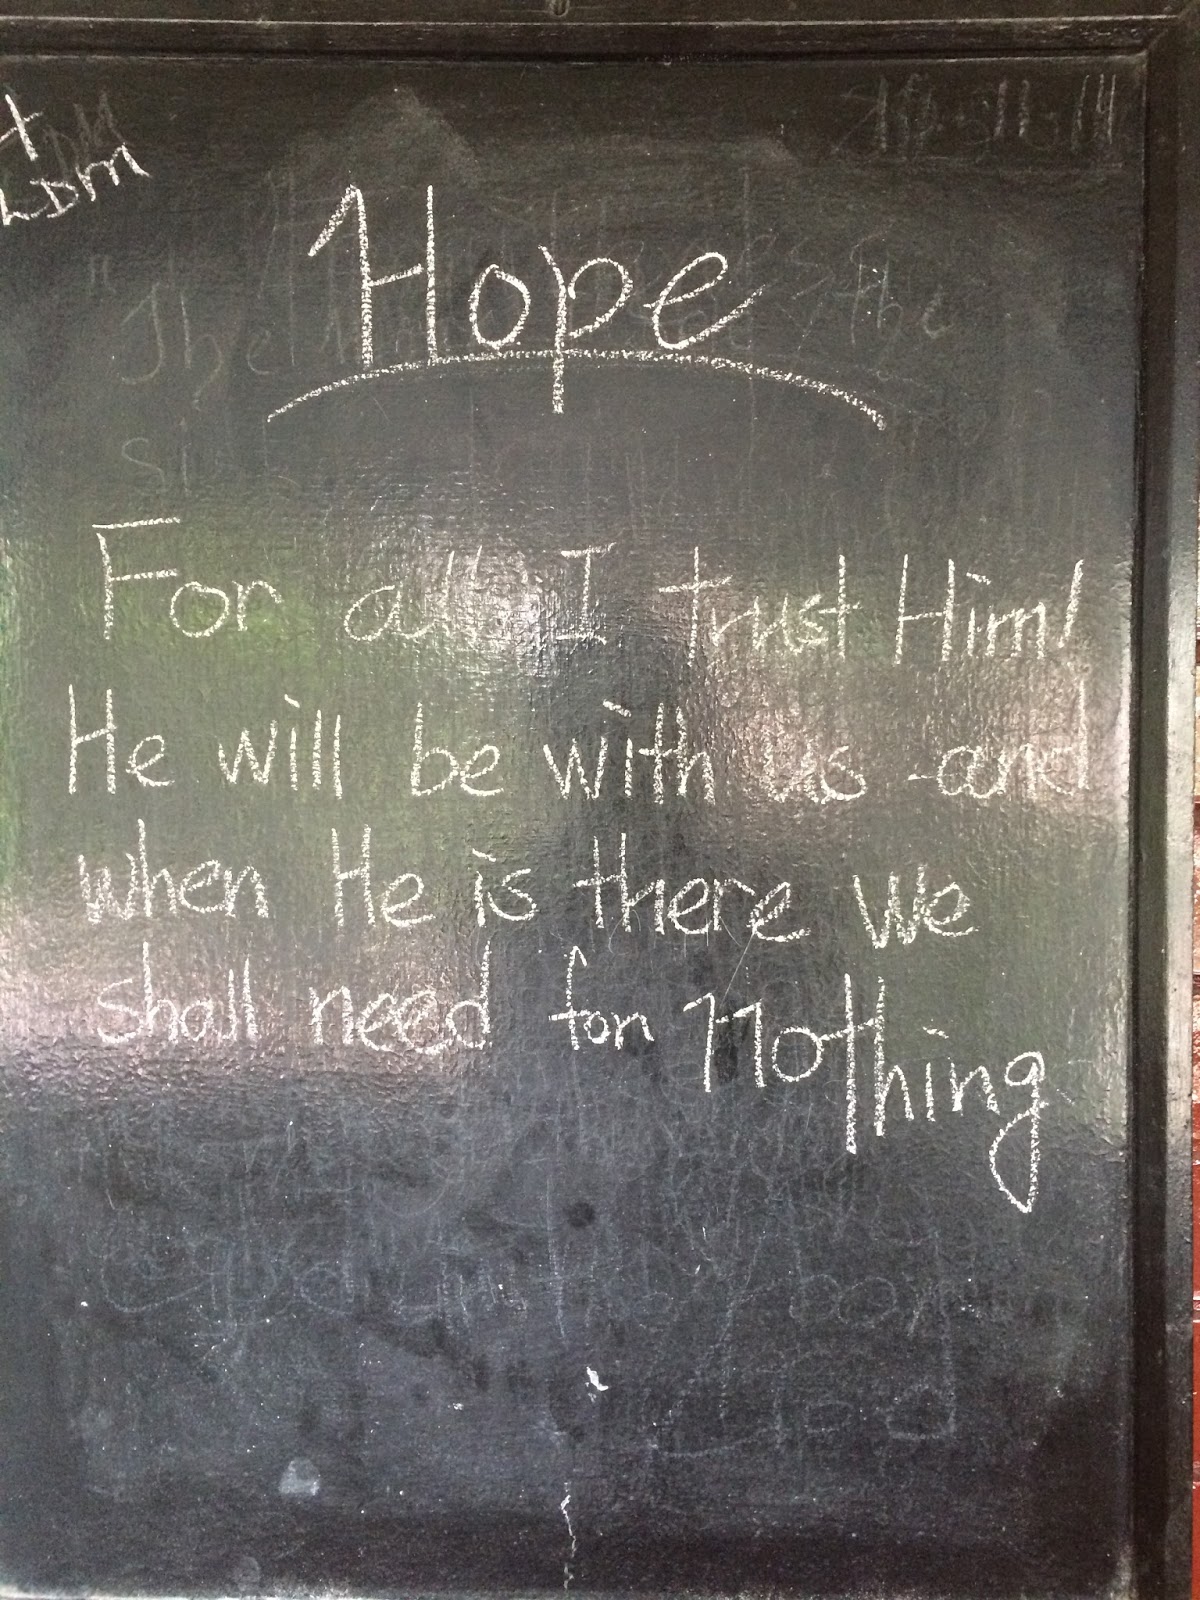 LDM
Hope
For all I trust Him!
He will be with us and
when He is there we
shall need for Nothing